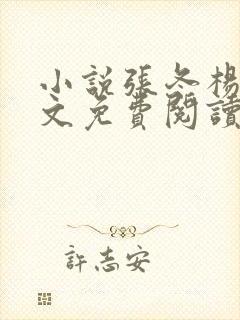 小說張冬楊
文免費閱讀
許志安